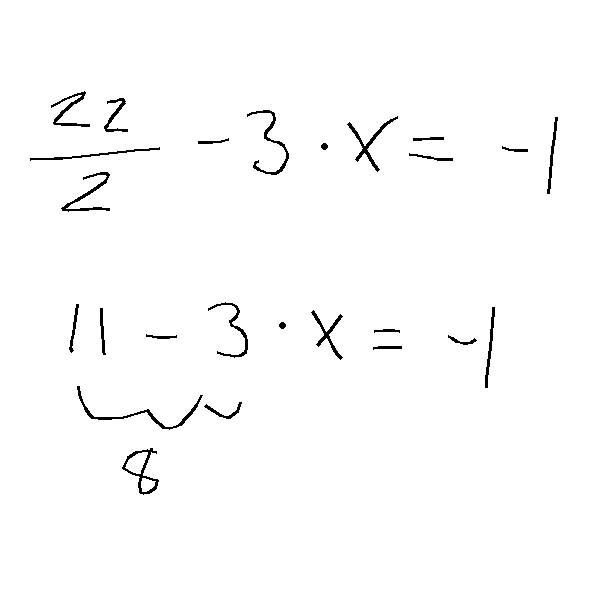 22/2 - 3 · x = -1
11 - 3 · x = -1
8